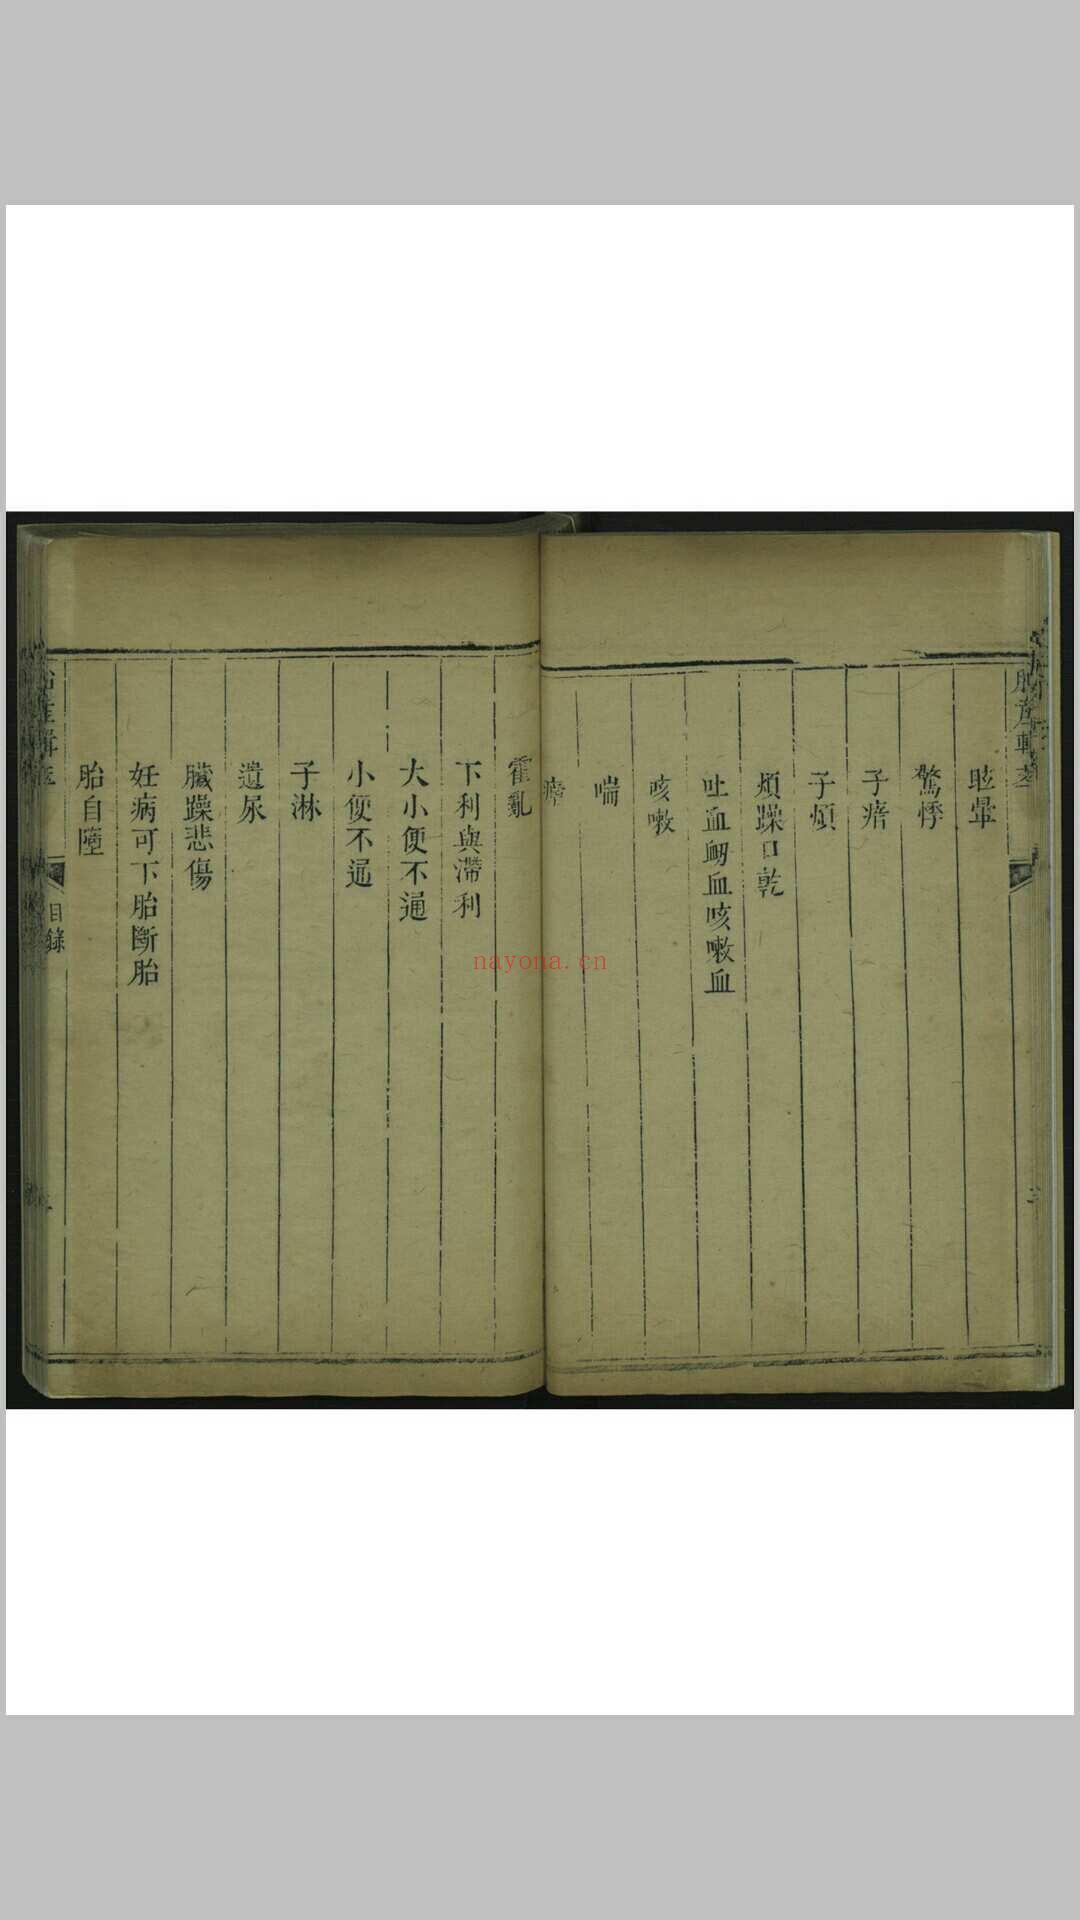 眩暈
驚悸
子瘖
子煩
煩躁口乾
吐血衄血咳嗽血
咳嗽
喘
瘧
霍亂
下利與滯利
大小便不通
小便不通
子淋
遺尿
臟躁悲傷
妊病可下胎斷胎
胎自墮
目錄
nayona.cn